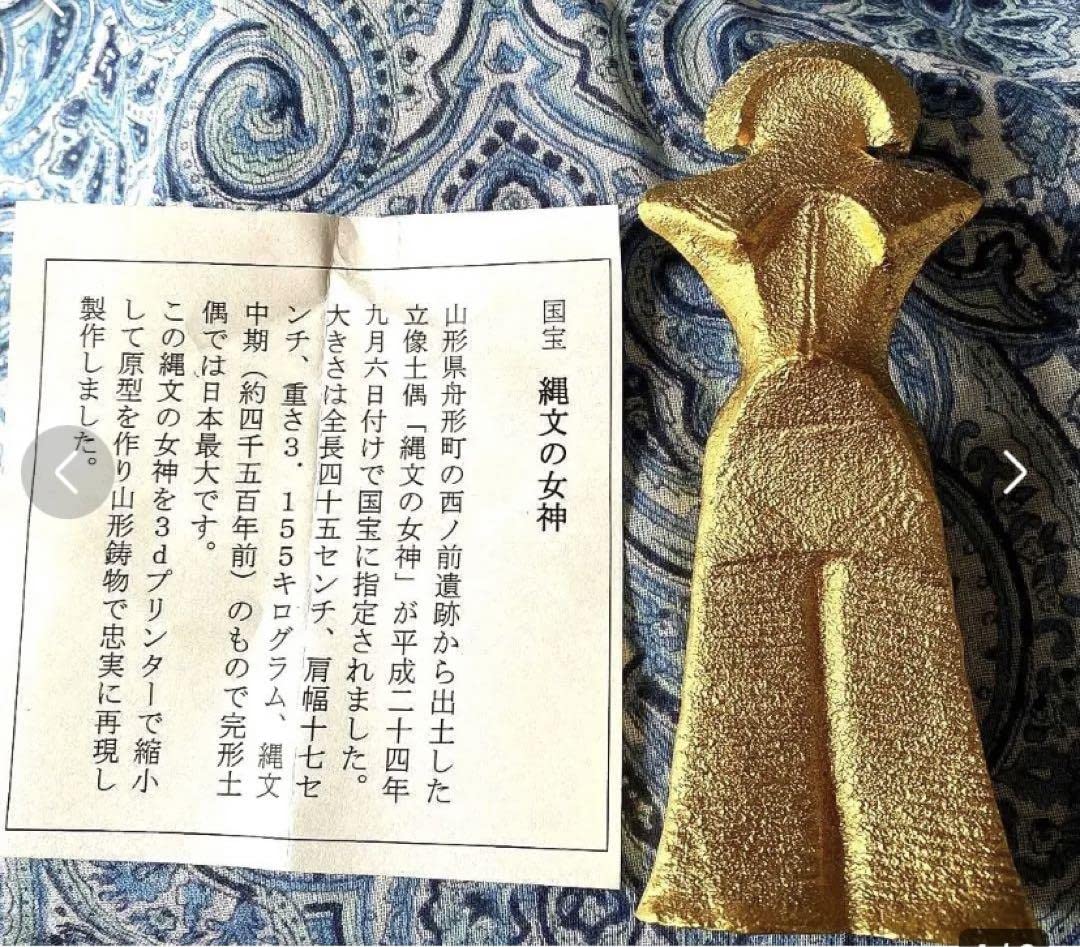 国宝　縄文の女神
山形県舟形町の西ノ前遺跡から出土した
立像土偶「縄文の女神」が平成二十四年
九月六日付けで国宝に指定されました。
大きさは全長四十五センチ、肩幅十七セ
ンチ、重さ3．155キログラム、縄文
中期（約四千五百年前）のもので完形土
偶では日本最大です。
この縄文の女神を3dプリンターで縮小
して原型を作り山形鋳物で忠実に再現し
製作しました。